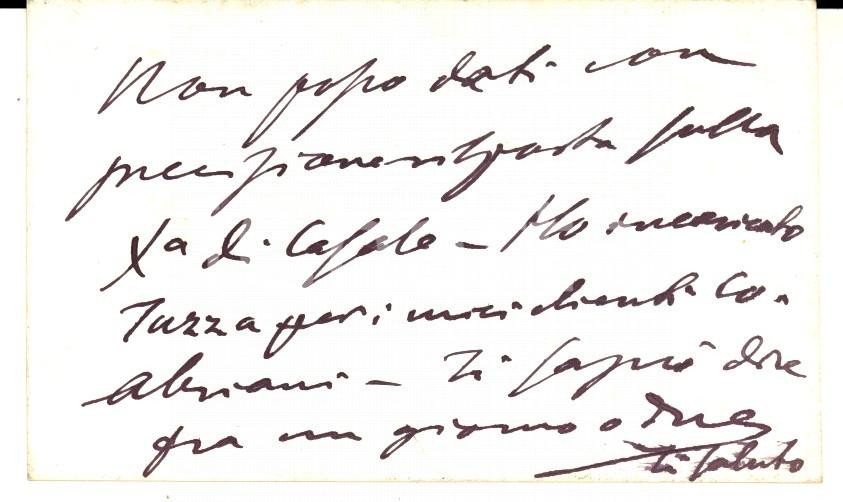 Non posso darti con
precisione risposta sulla
Xa di Casale - Ho incaricato
Tuzza per i miei clienti Co.
Abriani - Ti saprò dire
fra un giorno o due
Ti saluto